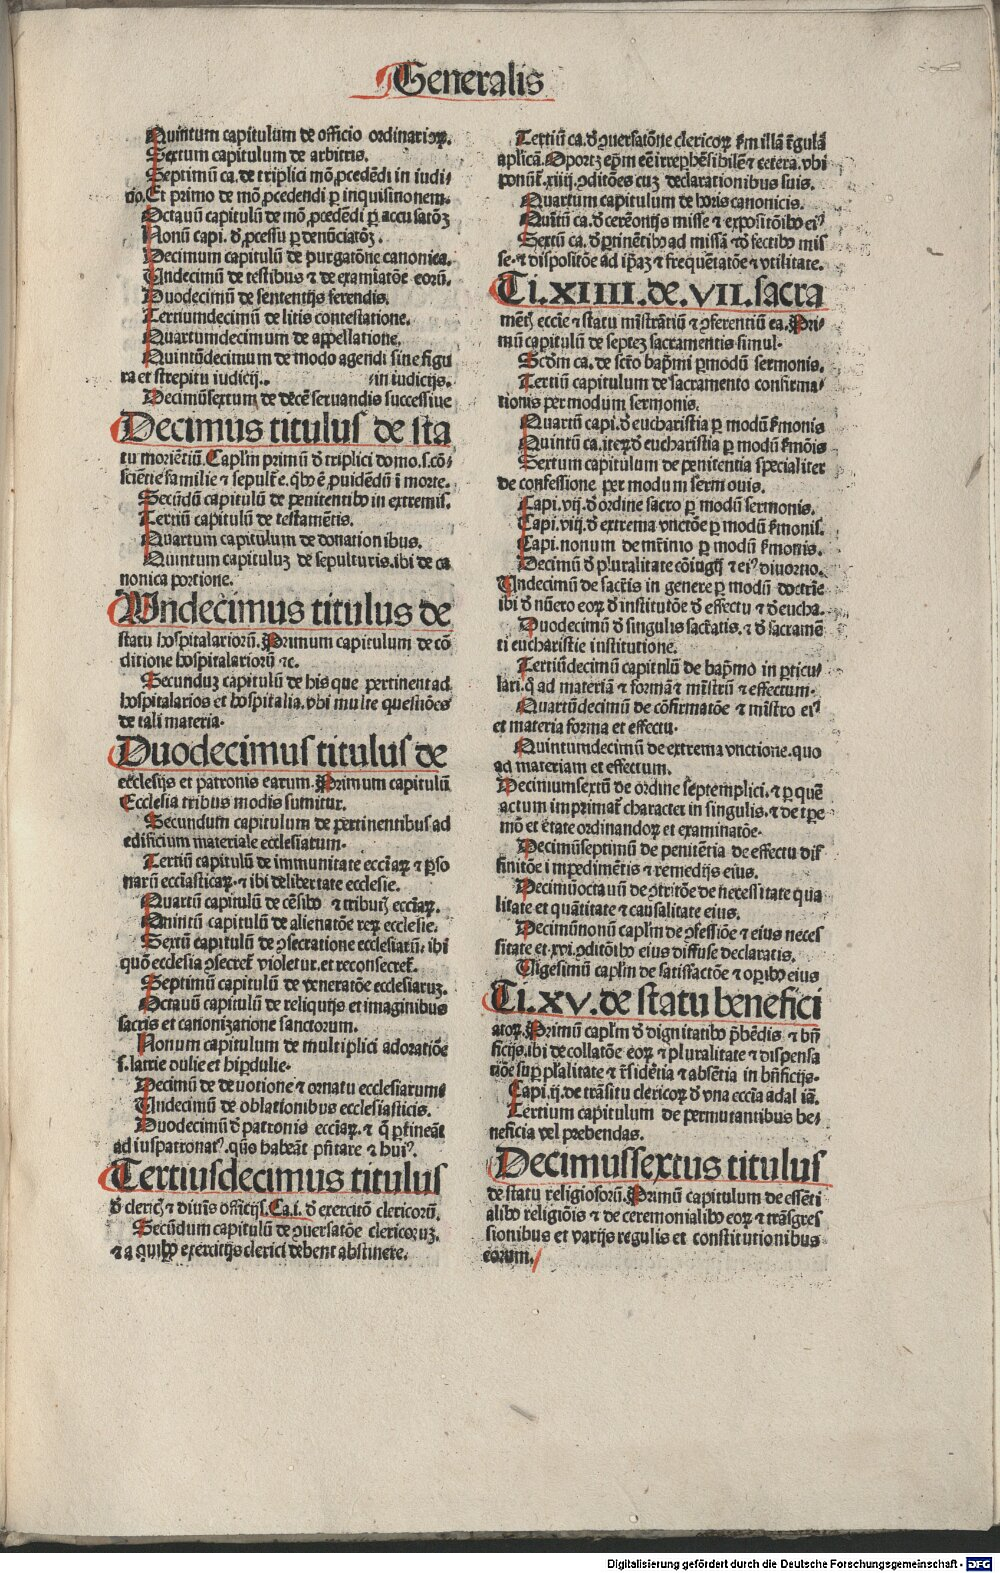 Generalis
Quintum capitulum de officio ordinarioꝝ.
Sextum capitulum de arbitris.
Septimū ca. de triplici mō ꝓcedēdi in iudi⸗
cio. Et primo de mō ꝓcedendi ꝑ inquisitionem.
Octauū capitulū de mō ꝓcedēdi ꝑ accusatōꝫ
Nonū capi. ď ꝓcessu ꝑ denūciatōꝫ.
Decimum capitulū de purgatōne canonica.
Undecimū de testibus ⁊ de examiatōe eorū.
Duodecimū de sententijs ferendis.
Tertiumdecimū de litis contestatione.
Quartumdecimum de appellatione.
Quintūdecimum de modo agendi sine figu
ra et strepitu iudicij.. ⸗in iudicijs.
Decimūsextum de decē seruandis successiue
Decimus titulus de sta
tu moriētiū. Capľm primū ď triplici domo .s. cō⸗
sciētie familie ⁊ sepulcř e. qbꝰ ē ꝓuidēdū ī morte.
Secūdū capitulū de penitentibꝰ in extremis.
Tertiū capitulū de testamētis.
Quartum capitulum de donationibus.
Quintum capituluꝫ de sepulturis. ibi de ca
nonica portione.
Undecimus titulus de
statu hospitalariorū. Primum capitulum de cō
ditione hospitalariorū ⁊c.
Secunduꝫ capitulū de his que pertinent ad
hospitalarios et hospitalia. vbi multe questiōes
de tali materia.
Duodecimus titulus de
ecclesijs et patronis earum. Primum capitulū
Ecclesia tribus modis sumitur.
Secundum capitulum de pertinentibus ad
edificium materiale ecclesiarum.
Tertiū capitulū de immunitate eccīaꝝ ⁊ ꝑso
narū eccīasticaꝝ. ⁊ ibi de libertate ecclesie.
Quartū capitulū de cēsibꝰ ⁊ tributꝭ eccīaꝝ.
Quintū capitulū de alienatōe reꝝ ecclesie.
Sextū capitulū de ꝯsecratione ecclesiarū. ibi
quō ecclesia ꝯsecret̄ violetur. et reconsecret̄.
Septimū capitulū de veneratōe ecclesiaruꝫ.
Octauū capitulū de reliquijs et imaginibus
sacris et canonizatione sanctorum.
Nonum capitulum de multiplici adoratiōe
s. latrie dulie et hiꝑdulie.
Decimū de deuotione ⁊ ornatu ecclesiarum⸗
Undecimū de oblationibus ecclesiasticis.
Duodecimū ď patronis eccīaꝝ. ⁊ q̄ ꝑtineāt
ad iuspatronatꝰ. quōs habeāt p̄ntare ⁊ huiꝰ.
Tertiusdecimus titulus
ď clericꝭ ⁊ diuīs officijs. Ca. i. ď exercitō clericorū.
Secūdum capitulū de ꝯuersatōe clericoruꝫ.
⁊ a quibꝰ exercitijs clerici debent abstinere.
Tertiū ca. ď ꝯuersatōne clericoꝝ ẜm illā r̄gulā
aplicā. Oportꝫ epm eē irrephēsibilē ⁊ cetera. vbi
ponūt̄ .xiiij. ꝯditōes cuꝫ declarationibus suis.
Quartum capitulum de horis canonicis.
Quītū ca. ď cerēonijs misse ⁊ expositōibꝰ eiꝰ
Sextū ca. ď ꝑtinētibꝰ ad missā ⁊ ď fectibꝰ mis
se. ⁊ dispositōe ad ip̄aꝫ ⁊ frequētatōe ⁊ vtilitate.
Ti. XIIII. de. VII. sacra
mētꝭ eccīe ⁊ statu mīstrātiū ⁊ ꝯferentiū ea. Pri⸗
mū capitulū de septeꝫ sacramentis simul.
Scd̄m ca. de scto bap̄mi ꝑ modū sermonis.
Tertiū capitulum de sacramento confirma⸗
tionis per modum sermonis.
Quartū capi. ď eucharistia ꝑ modū ẜmonis
Quintū ca. iteꝝ ď eucharistia ꝑ modū ẜmōis
Sextum capitulum de penitentia specialiter
de confessione per modum sermonis.
Capi. vij. ď ordine sacro ꝑ modū sermonis.
Capi. viij. ď extrema vnctōe ꝑ modū ẜmonis.
Capi. nonum de mr̄imio ꝑ modū ẜmonis.
Decimū ď pluralitate cōiugij ⁊ eiꝰ diuortio.
Undecimū de sacr̄is in genere ꝑ modū doctrīe
ibi ď nūero eoꝝ ď institutōe ď effectu ⁊ ď eucha.
Duodecimū ď singulis sacr̄atis. ⁊ ď sacramē
ti eucharistie institutione.
Tertiūdecimū capitulū de bap̄mo in ꝑticu⸗
lari. q̄ ad materiā ⁊ formā ⁊ mīstrū ⁊ effectum.
Quartūdecimū de cōfirmatōe ⁊ mīstro eiꝰ
et materia forma et effectu.
Quintumdecimū de extrema vnctione. quo
ad materiam et effectum.
Decimumsextū de ordine septemplici. ⁊ ꝑ quē
actum imprimat̄ character in singulis. ⁊ de tꝑe
mō et etate ordinandoꝝ et examinatōe.
Decimūseptimū de penitētia de effectu dif
finitōe impedimētis ⁊ remedijs eius.
Decimūoctauū de ꝯtritōe de necessitate qua
litate et quātitate ⁊ causalitate eius.
Decimūnonū capľm de ꝯfessiōe ⁊ eius neces
sitate et .xvi. ꝯditōibꝰ eius diffuse declaratis.
Uigesimū capľm de satisfactōe ⁊ oꝑibꝰ eius
Ti. XV. de statu benefici
atoꝝ. Primū capľm ď dignitatibꝰ p̄bēdis ⁊ bn̄
ficijs. ibi de collatōe eoꝝ ⁊ pluralitate ⁊ dispensa
tiōe suꝑ pľalitate ⁊ r̄sidētia ⁊ absētia in bn̄ficijs.
Capi. ij. de trāsitu clericoꝝ ď vna eccīa ad aľiā.
Tertium capitulum de permutantibus be⸗
neficia vel prebendas.
Decimussextus titulus
de statu religiosorū. Primū capitulum de essēti
alibꝰ religiōis ⁊ de ceremonialibꝰ eoꝝ ⁊ trāsgres
sionibus et varijs regulis et constitutionibus
eorum.
Digitalisierung gefördert durch die Deutsche Forschungsgemeinschaft - DFG